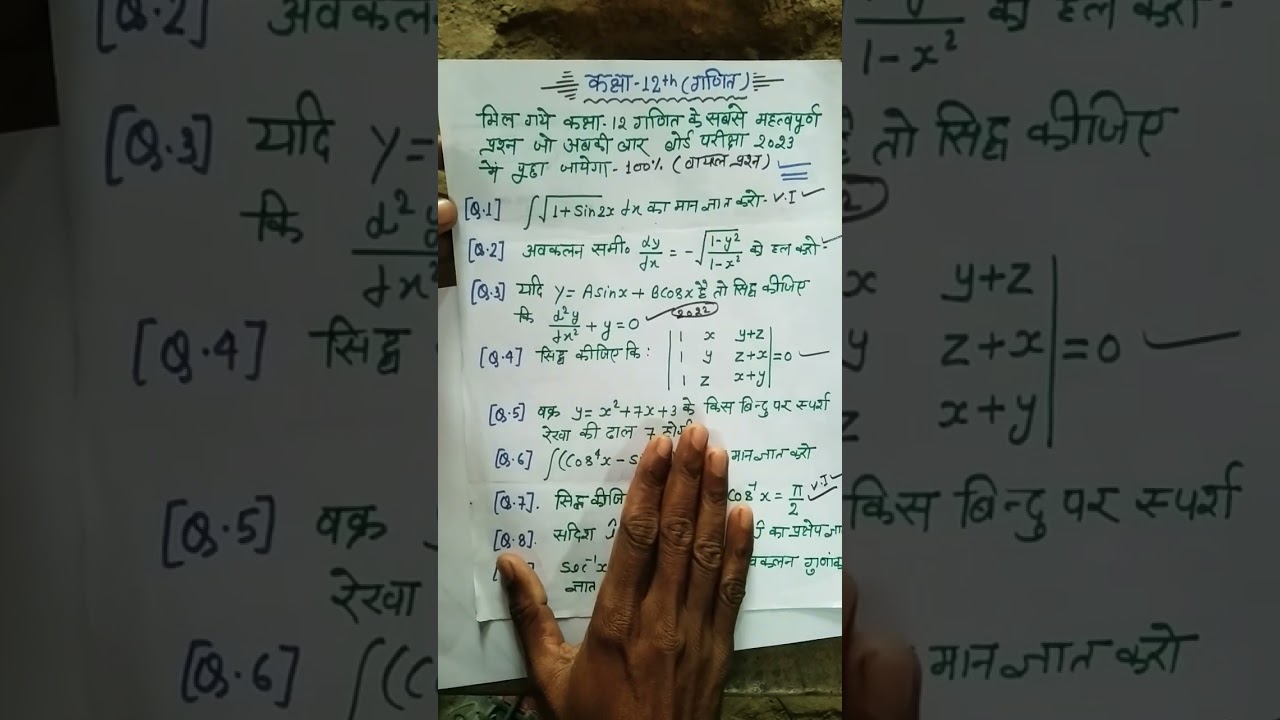 कक्षा-12th (गणित)
मिल गये कक्षा-12 गणित के सबसे महत्वपूर्ण
प्रश्न जो अबकी बार बोर्ड परीक्षा 2023
में पूछा जायेगा- 100% (वायरल प्रश्न)
[Q.1] ∫√1+Sin2x dx का मान ज्ञात करो- V.I
[Q.2] अवकलन समी० dy/dx = -√1-y²/1-x² को हल करो-
[Q.3] यदि y= Asinx + Bcosx है तो सिद्ध कीजिए
कि d²y/dx² + y = 0 2022
[Q.4] सिद्ध कीजिए कि: | 1 x y+z |
| 1 y z+x | =0
| 1 z x+y |
[Q.5] वक्र y= x²+7x+3 के किस बिन्दु पर स्पर्श
रेखा की ढाल 7
[Q.6] ∫(Cos⁴x - मान ज्ञात करो
[Q.7]. सिद्ध Cos⁻¹x = π/2 V.I
[Q.8]. सदिश का प्रक्षेप
Sec⁻¹x गुणांक
ज्ञात
[Q.2] अवकलन
1-x² को हल करो-
[Q.3] यदि y= है तो सिद्ध कीजिए
कि d²y/dx²
[Q.4] सिद्ध y+z
z+x =0
x+y
[Q.5] वक्र किस बिन्दु पर स्पर्श
रेखा
[Q.6] ∫(C मान ज्ञात करो